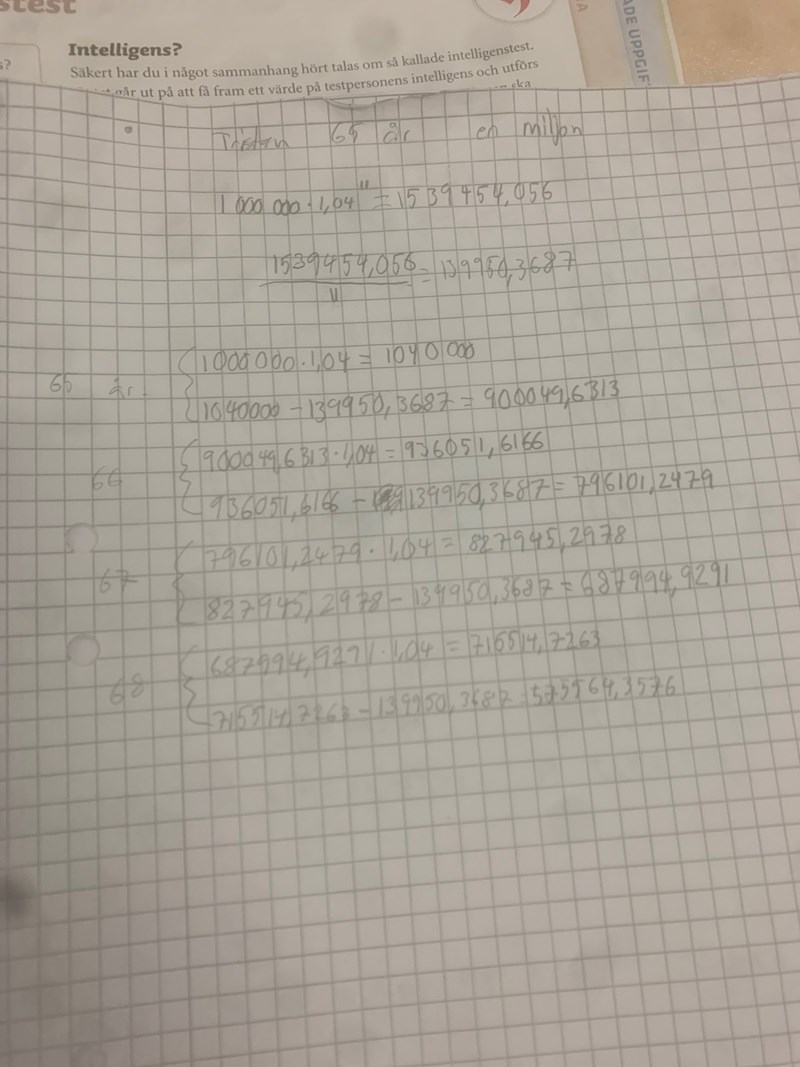 stest
Intelligens?
Säkert har du i något sammanhang hört talas om så kallade intelligenstest.
går ut på att få fram ett värde på testpersonens intelligens och utförs
ska
s?
ADE UPPGIF
65 år en miljon
1 000 000 · 1,04¹¹ = 1539454,056
1539454,056 / 11 = 139950,3687
65 år
1000000 · 1,04 = 1040000
1040000 - 139950,3687 = 900049,6313
66
900049,6313 · 1,04 = 936051,6166
936051,6166 - 139950,3687 = 796101,2479
67
796101,2479 · 1,04 = 827945,2978
827945,2978 - 139950,3687 = 687994,9291
68
687994,9291 · 1,04 = 715514,7263
715514,7263 - 139950,3687 = 575564,3576